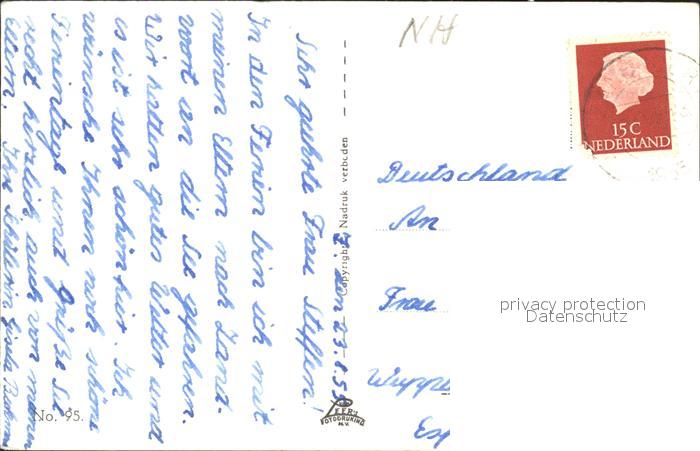 NH
15C
NEDERLAND
Z. den 23.8.59
Sehr geehrte Frau Steffen!
In den Ferien bin ich mit
meinen Eltern nach Zand-
vort an die See gefahren.
Wir hatten gutes Wetter und
es ist sehr schön hier. Ich
wünsche Ihnen noch schöne
Ferientage und grüße Sie
recht herzlich auch von meinen
Eltern. Ihre Schülerin Gisela
Copyright Nadruk verboden
Deutschland
An
Frau
Wuppe
privacy protection
Datenschutz
No. 95.
FOTODRUKKERIJ
N.V.